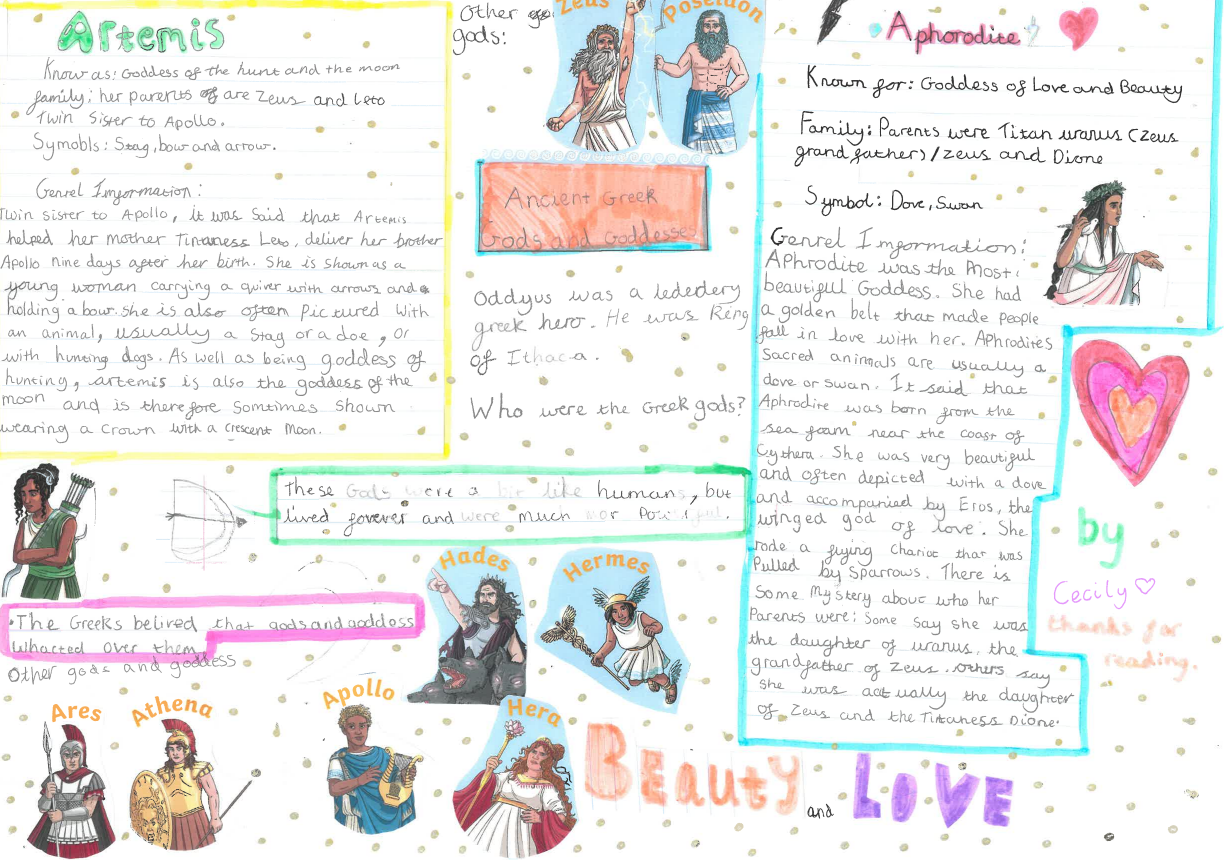 Artemis
Know as: Goddess of the hunt and the moon
family; her parents of are Zeus and Leto
Twin Sister to Apollo.
Symobls: Stag, bow and arrow.
Genrel Imformation:
Twin sister to Apollo, it was said that Artemis
helped her mother Titaness Leto, deliver her brother
Apollo nine days after her birth. She is shown as a
young woman carrying a quiver with arrows and
holding a bow. She is also often pictured with
an animal, usually a stag or a doe, or
with hunting dogs. As well as being goddess of
hunting, artemis is also the goddess of the
moon and is therefore somtimes shown
wearing a crown with a crescent Moon.
Other
gods:
Zeus
Poseidon
Ancient Greek
Gods and Goddesses
Oddyus was a ledendery
greek hero. He was King
of Ithaca.
Who were the Greek gods?
These Gods were a bit like humans, but
lived forever and were much mor Powerful.
•The Greeks belived that gods and goddess
Whacted over them
Other gods and goddess
Ares
Athena
Apollo
Hades
Hermes
Hera
Beauty
and
LOVE
Aphorodite
Known for: Goddess of Love and Beauty
Family: Parents were Titan uranus (Zeus
grand father) / Zeus and Dione
Symbol: Dove, Swan
Genrel Imformation:
APhrodite was the Most
beautiful Goddess. She had
a golden belt that made people
fall in love with her. APhrodites
Sacred animals are usually a
dove or swan. It said that
Aphrodite was born from the
sea foam near the coast of
Cythera. She was very beautiful
and often depicted with a dove
and accompanied by Eros, the
winged god of love. She
rode a flying Chariot that was
Pulled by Sparrows. There is
Some Mystery about who her
Parents were: Some say she was
the daughter of uranus, the
grandfather of Zeus. others say
she was actually the daughter
of Zeus and the Titaness Dione.
by
Cecily
thanks for
reading.